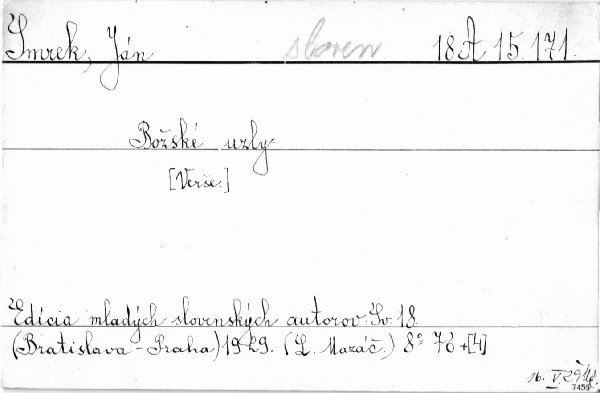 Smrek, Ján sloven 18 A 15.171.
Božské uzly.
[Verše.]
Edícia mladých slovenských autorov. Sv. 18.
(Bratislava - Praha) 1929. (L. Mazáč.) 8° 76 + [4]
16. V. 29
7455